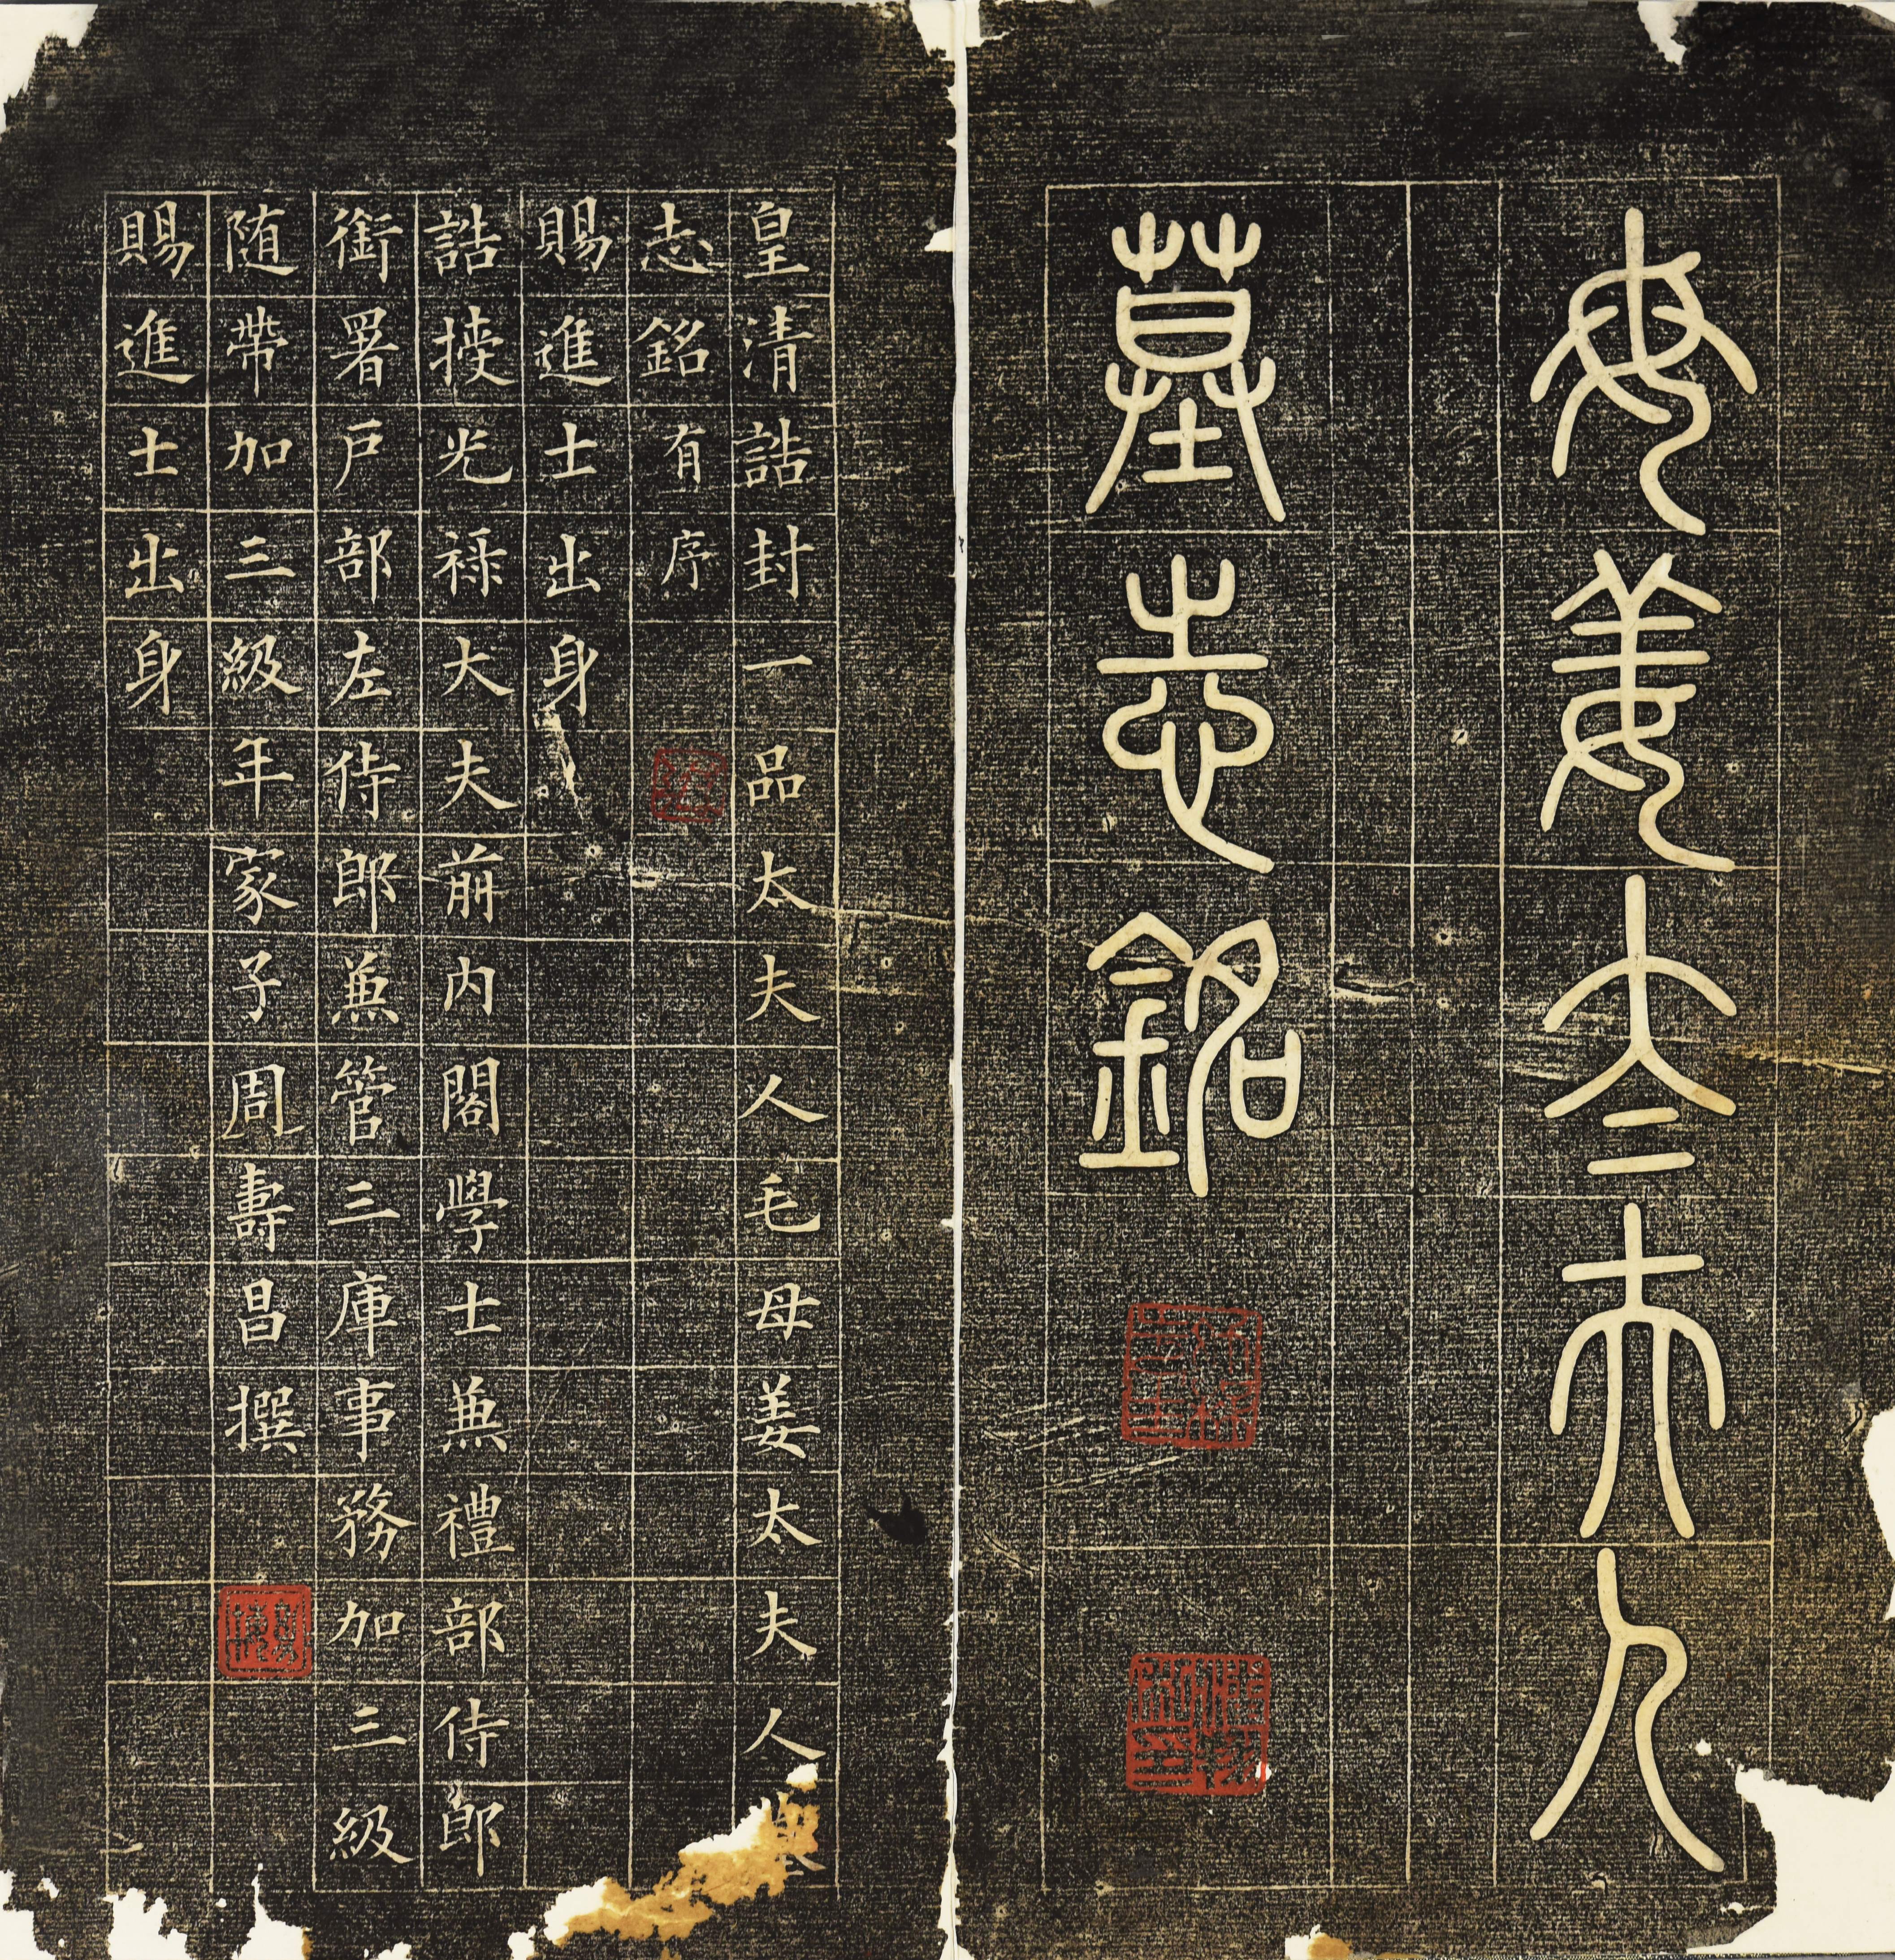 母姜太夫人
墓志銘
皇清誥封一品太夫人毛母姜太夫人墓
志銘有序
賜進士出身
誥授光祿大夫前内閣學士兼禮部侍郎
銜署戶部左侍郎兼管三庫事務加三級
随帶加三級年家子周壽昌撰
賜進士出身